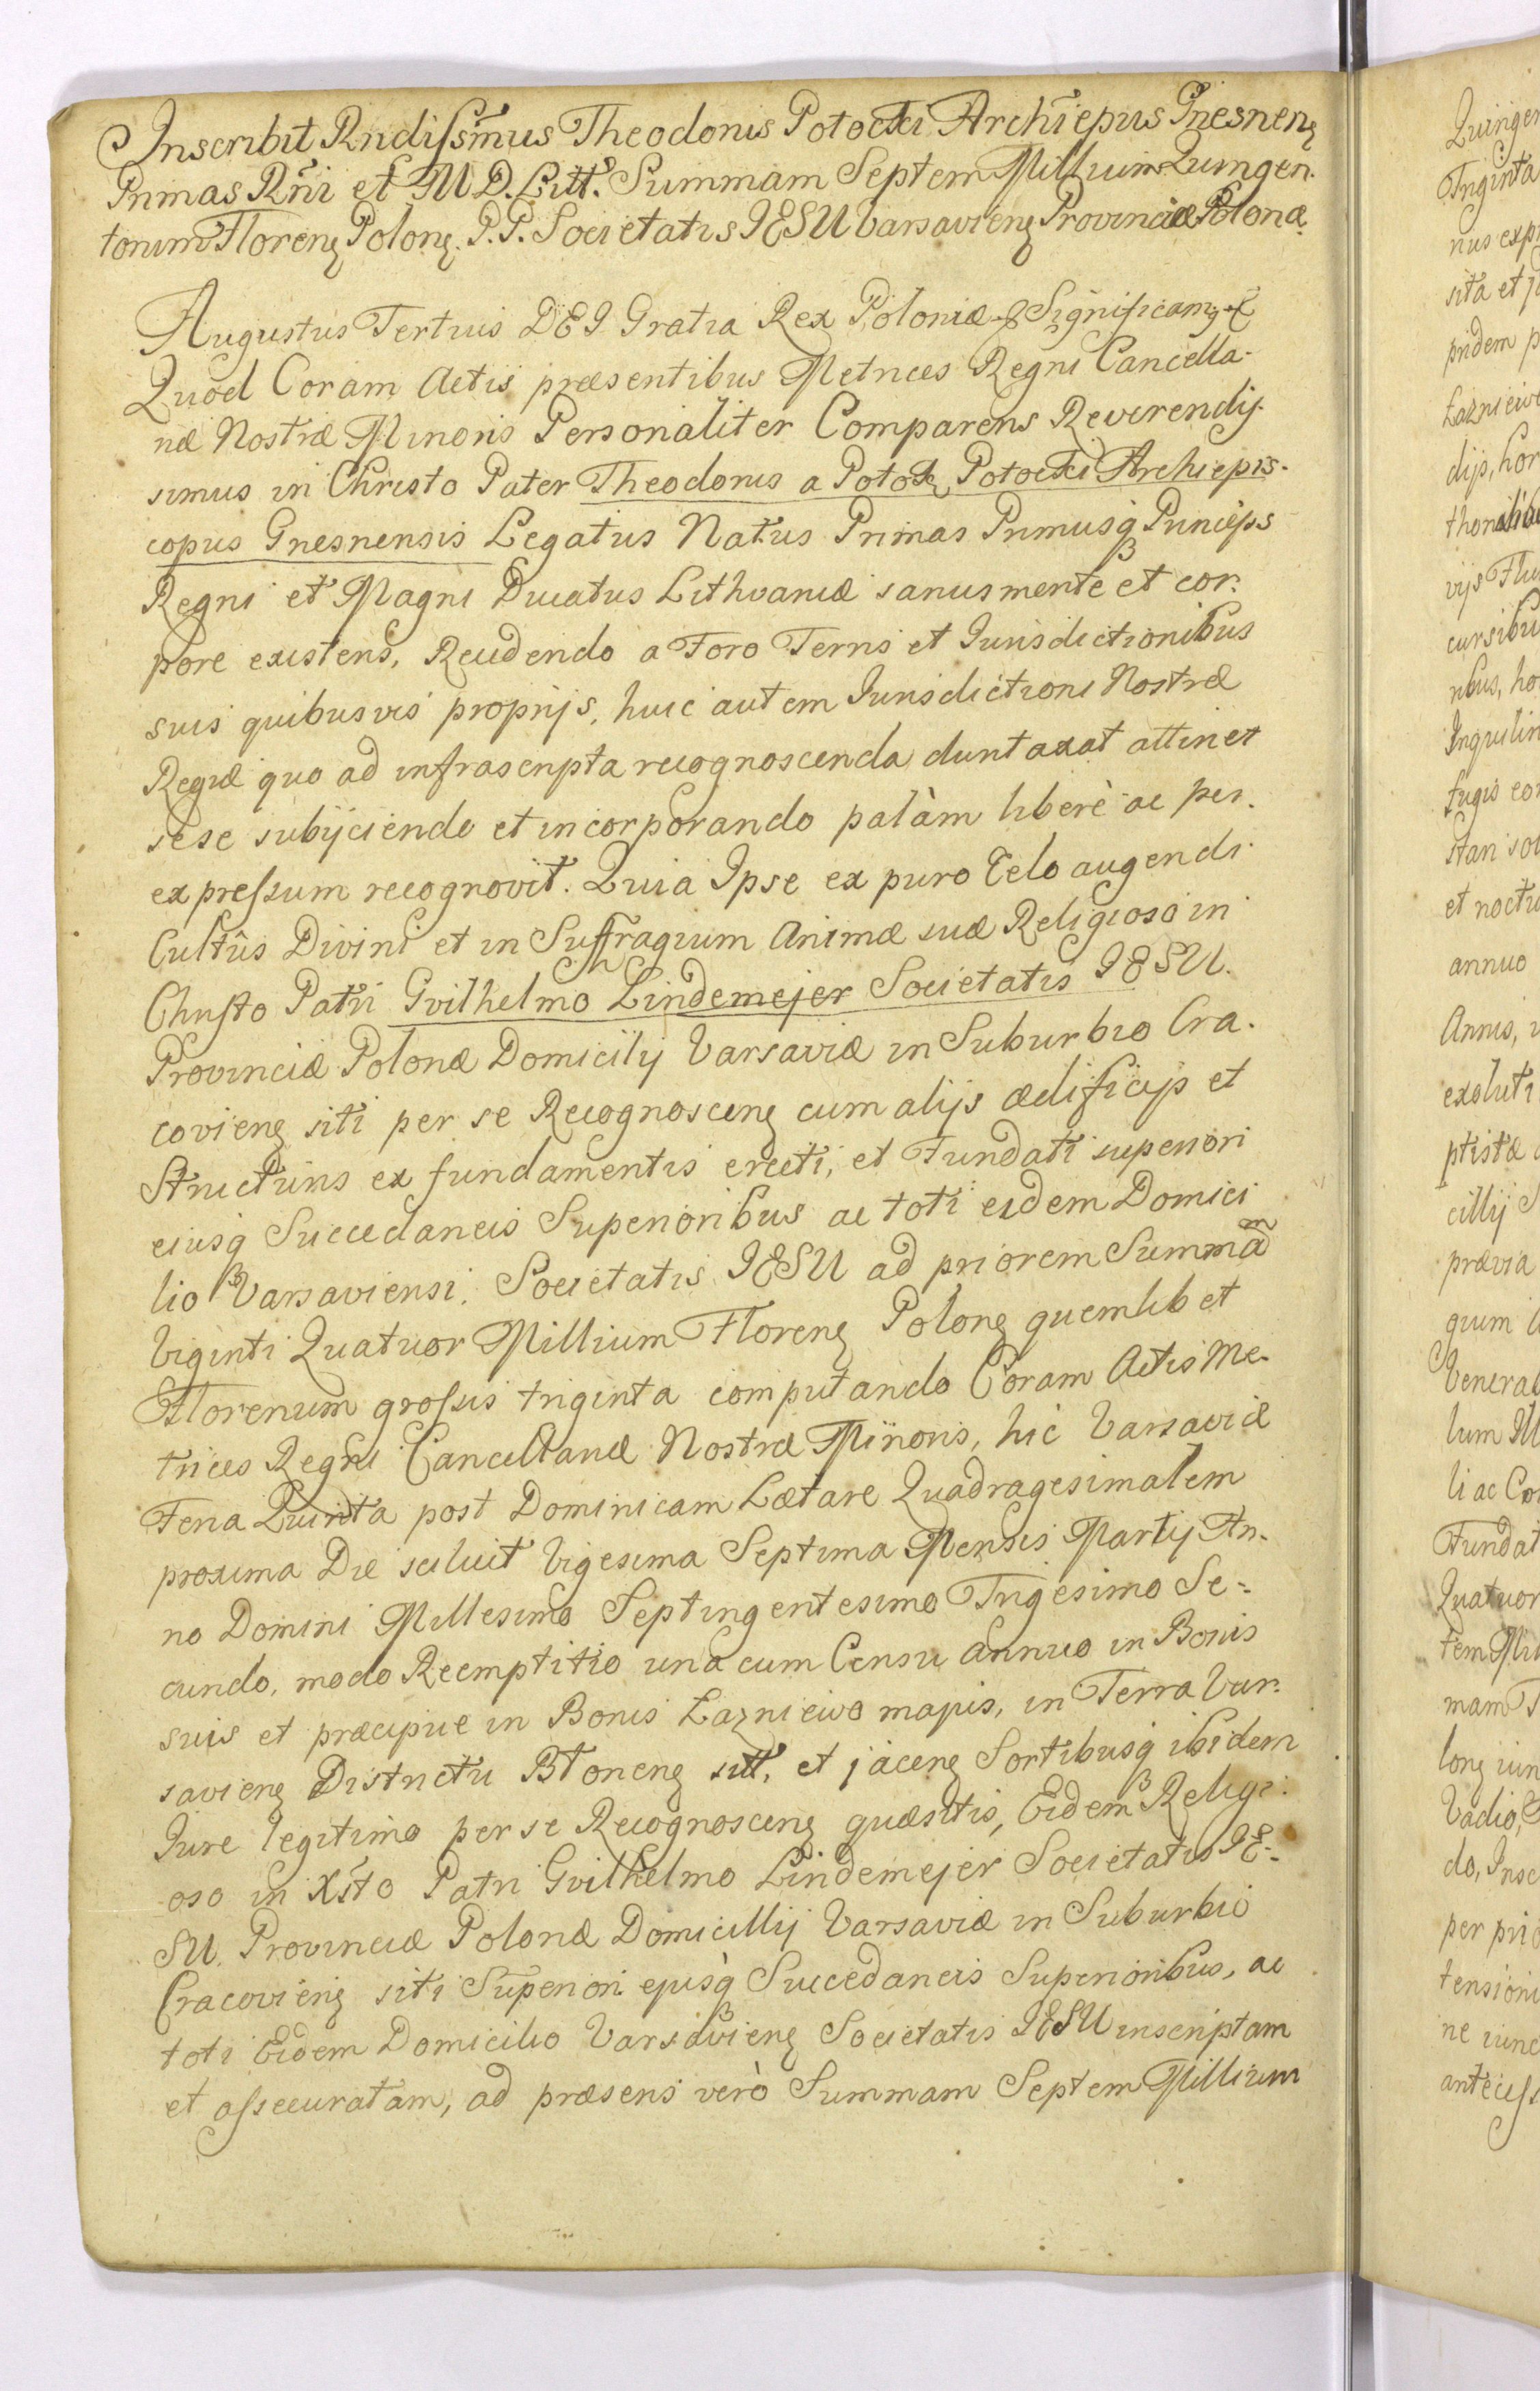 Inscribit Rndissm̃us Theodorus Potocki Archiẽpus Gnesnenѕ
Primas Rñi et M D. Litt. Summam Septem Millium Quingen.
torum Florenѕ Polonѕ. P.P. Societatis IESU Varsavienѕ Provinciæ Polonæ
Augustus Tertius DEI Gratia Rex Poloniæ & Significamꝰ &
Quod Coram Actis præsentibus Metrices Regni Cancella-
riæ Nostræ Minoris Personaliter Comparens Reverendis-
simus in Christo Pater Theodorus a Potok Potocki Archiepis-
copus Gnesnensis Legatus Natus Primas Primusq́ Princeps
Regni et Magni Ducatus Lithvaniæ sanus mente et cor-
pore existens, Recedendo a Foro Terris et Iurisdictionibus
suis quibusvis proprijs, huic autem Iurisdictioni Nostræ
Regiæ quo ad infrascripta recognoscenda duntaxat attinet
sese subijciendo et incorporando palàm liberè ac per.
expressum recognovit. Quia Ipse ex puro Zelo augendi
Cultûs Divini et in Suffragium Animæ suæ Religioso in
Christo Patri Gvilhelmo Lindemejer Societatis IESU.
Provinciæ Polonæ Domicilij Varsaviæ in Suburbio Cra-
covienѕ siti per se Recognoscenѕ cum alijs ædificijs et
Structuris ex fundamentis erecti, et Fundati superiori
eiusq́ Succedaneis Superioribus ac toti eidem Domici
lio Varsaviensi. Societatis IESU ad priorem Summam̃
Viginti Quatuor Millium Florenѕ Polonѕ quemlibet
Florenum grossis triginta computando Coram Actis Me-
trices Regni Cancellariæ Nostræ Minoris, hic Varsaviæ
Feria Quinta post Dominicam Lætare Quadragesimalem
proxima Die scilicet Vigesima Septima Mensis Martij An-
no Domini Millesimo Septingentesimo Trigesimo Se-
cundo, modo Reemptitio una cum Censu annuo in Bonis
suis et præcipue in Bonis Łazniewo majus, in Terra Var-
savienѕ Districtu Błonenѕ sitt, et jacenѕ Sortibusq́ ibidem
Iure legitimo per se Recognoscenѕ quæsitis, Eidem Religi-
oso in Xsto Patri Gvilhelmo Lindemejer Societatis IE-
SU. Provinciæ Polonæ Domicillij Varsaviæ in Suburbio
Cracovienѕ siti Superiori ejusq̀ Succedaneis Superioribus, ac
toti Eidem Domicilio Varsavienѕ Societatis IESU inscriptam
et assecuratam, ad præsens verò Summam Septem Millium